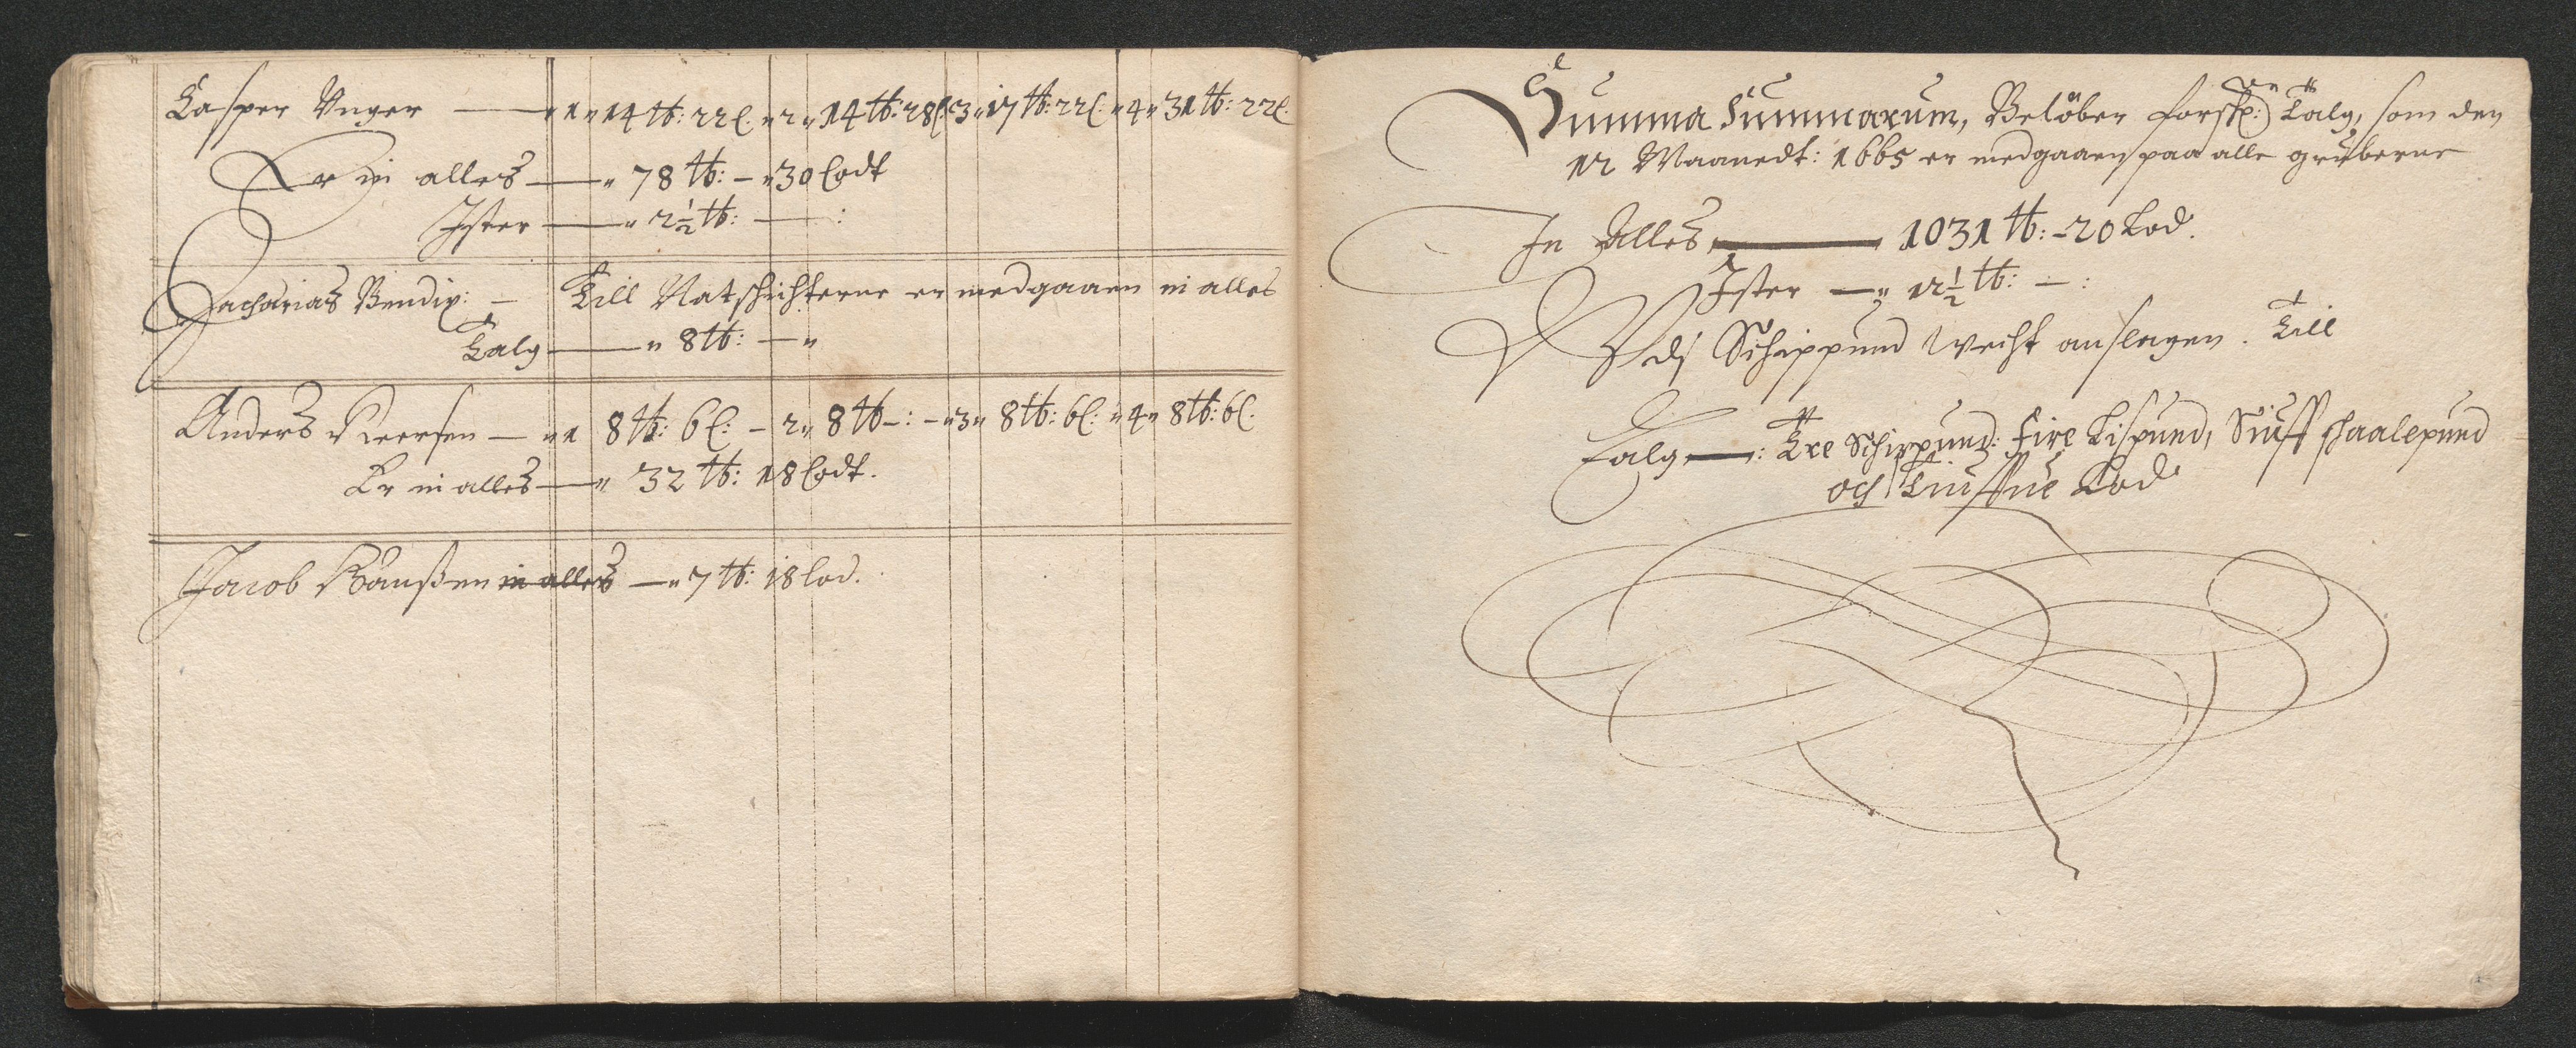 Casper Unger — " 1 " 14 ℔: 22 l. " 2 " 14 ℔: 28 l: 3 " 17 ℔: 22 l: " 4 " 31 ℔: 22 l.
Er in alles — " 78 ℔: — " 30 Lodt
Ister — " 2½ ℔: — :
Zacharias Bendix: — Till Natschichterne er medgaaen in alles
Talg — " 8 ℔: — "
Anders Iversen — " 1 8 ℔: 6 l: — 2 " 8 ℔ — : — " 3 " 8 ℔: 6 l: " 4 " 8 ℔: 6 l.
Er in alles — " 32 ℔: 18 Lodt.
Jacob in alles — " 7 ℔: 18 lod.
Summa Summarum, Belöber forskp: Talg, som den
12 Maanedt: 1665 er medgaaen paa alle grüberne
In Alles — 1031 ℔: — 20 Lod.
Ister — " 12½ ℔: — :
Schippund Wecht anslagen. Till
Talg — : Tre Schippund: Fire Lispund, Siuff schaalepund
och Tiuffue Lod